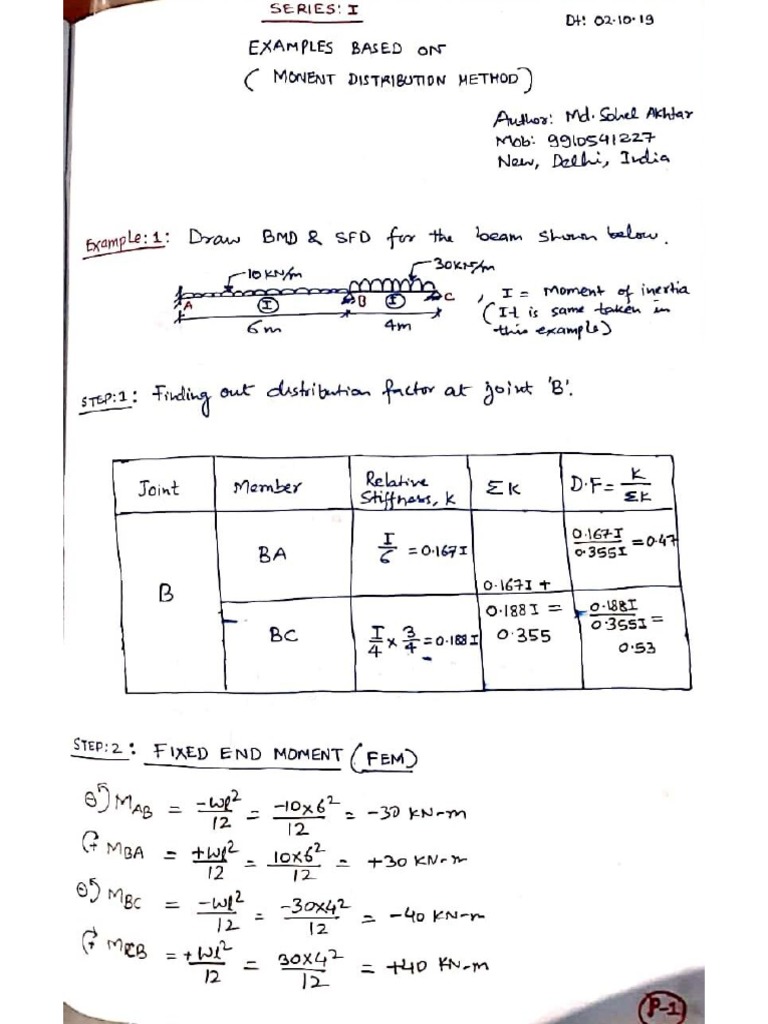 SERIES: I
Dt: 02.10.19
EXAMPLES BASED ON
( MOMENT DISTRIBUTION METHOD )
Author: Md. Sohel Akhtar
Mob: 9910541227
New, Delhi, India
Example:1: Draw BMD & SFD for the beam shown below.
10 KN/m 30 KN/m
A I B I C
6m 4m
, I = Moment of inertia
(It is same taken in
this example)
STEP:1: Finding out distribution factor at joint 'B'.
Joint Member Relative Stiffness, K ΣK D.F = K/ΣK
B
BA I/6 = 0.167I 0.167I/0.355I = 0.47
0.167I + 0.188I = 0.355
BC I/4 × 3/4 = 0.188I 0.188I/0.355I = 0.53
STEP:2: FIXED END MOMENT (FEM)
⊖ M_AB = -wl²/12 = -10×6²/12 = -30 KN-m
+ M_BA = +wl²/12 = 10×6²/12 = +30 KN-m
⊖ M_BC = -wl²/12 = -30×4²/12 = -40 KN-m
+ M_CB = +wl²/12 = 30×4²/12 = +40 KN-m
P-1